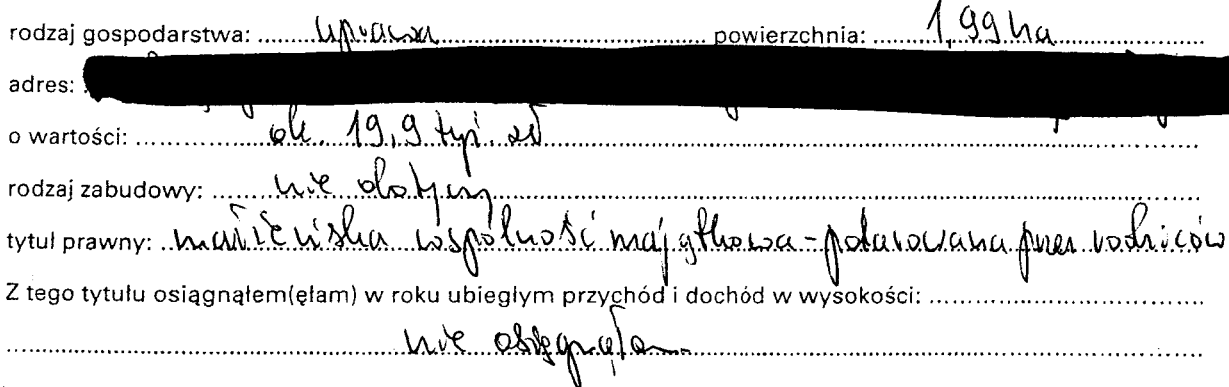 rodzaj gospodarstwa: uprawa powierzchnia: 1,99 ha
adres:
o wartości: ok. 19,9 tyś. zł
rodzaj zabudowy: nie dotyczy
tytuł prawny: małżeńska wspólność majątkowa - podarowana przez rodziców
Z tego tytułu osiągnąłem(ęłam) w roku ubiegłym przychód i dochód w wysokości:
nie osiągnęłam